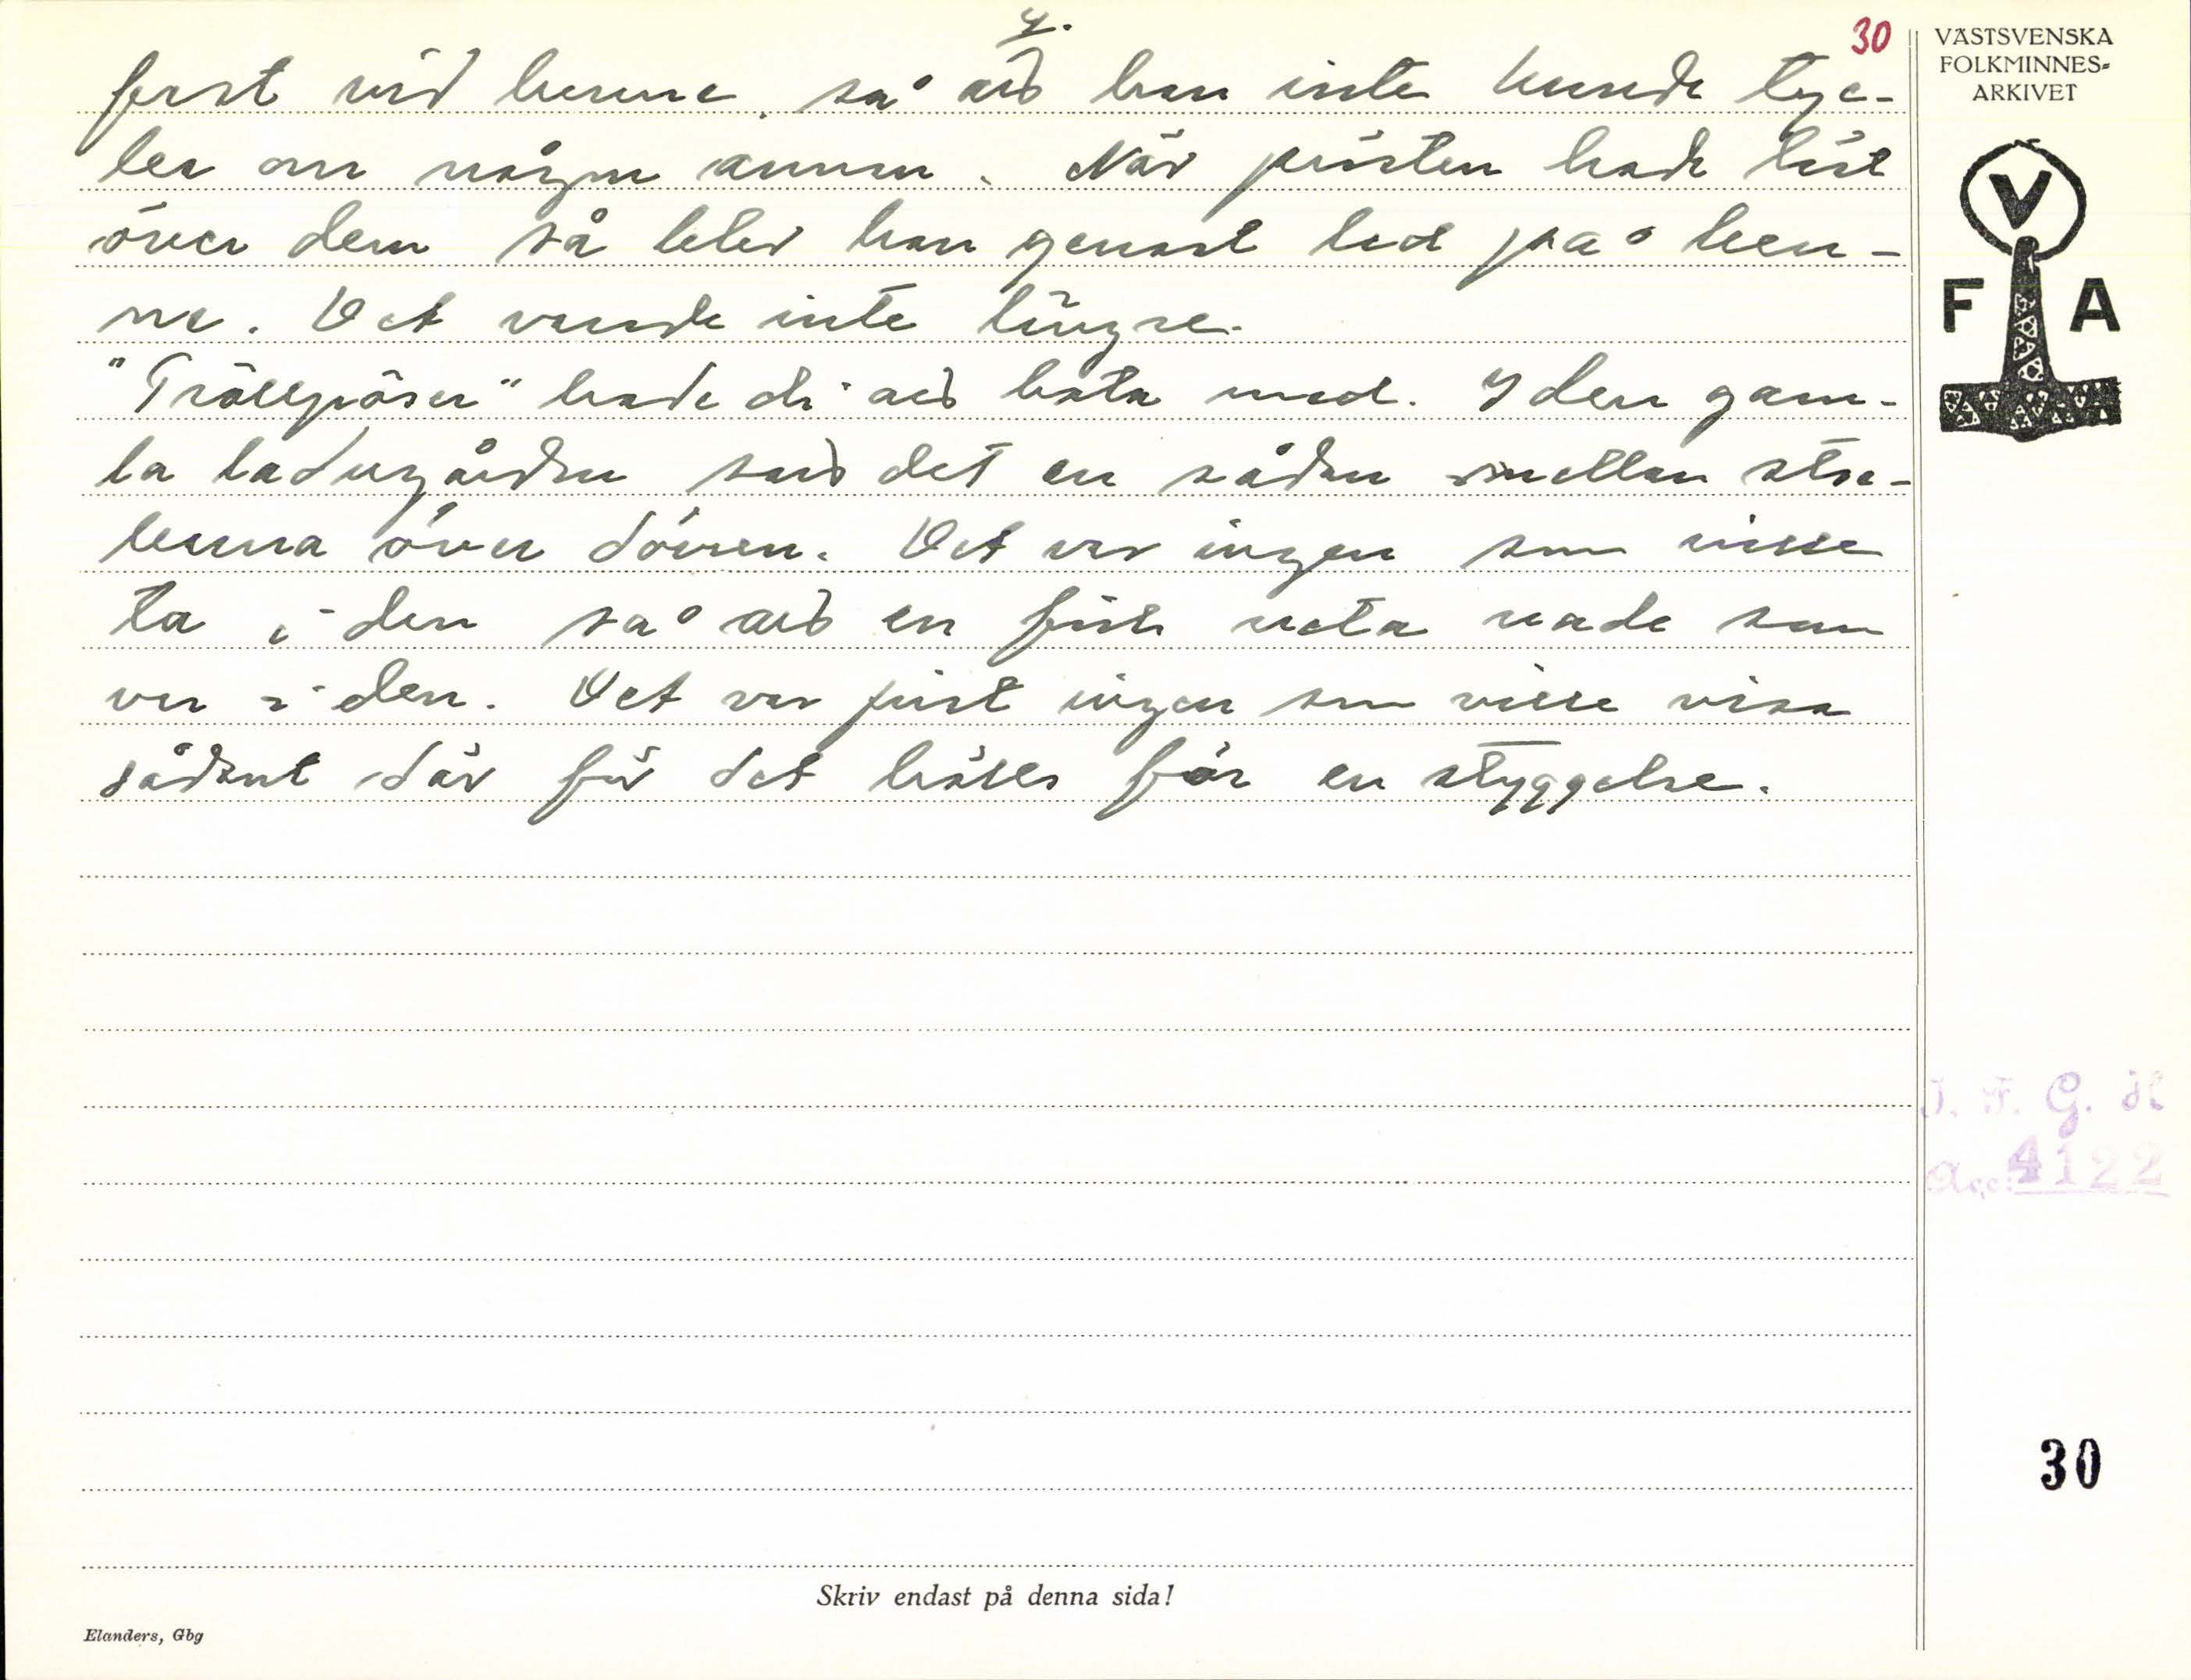 4.
30
fast vid henne, så att han inte kunde tyc-
ker om någon annan. När prästen hade läst
över dem så blev han genast led på hen-
ne. Det varade inte längre.
"Trollpåsar" hade di att bota med. I den gam-
la ladugården satt det en sådan mellan stoc-
karna över dörren. Det var ingen som visste
ta i den så att en fick veta vade som
var i den. Det var just ingen som ville visa
sådant där för det hölls för en styggelse.
VÄSTSVENSKA
FOLKMINNES-
ARKIVET
V
F A
I. F. G. H
Acc. 4122
30
Skriv endast på denna sida!
Elanders, Gbg